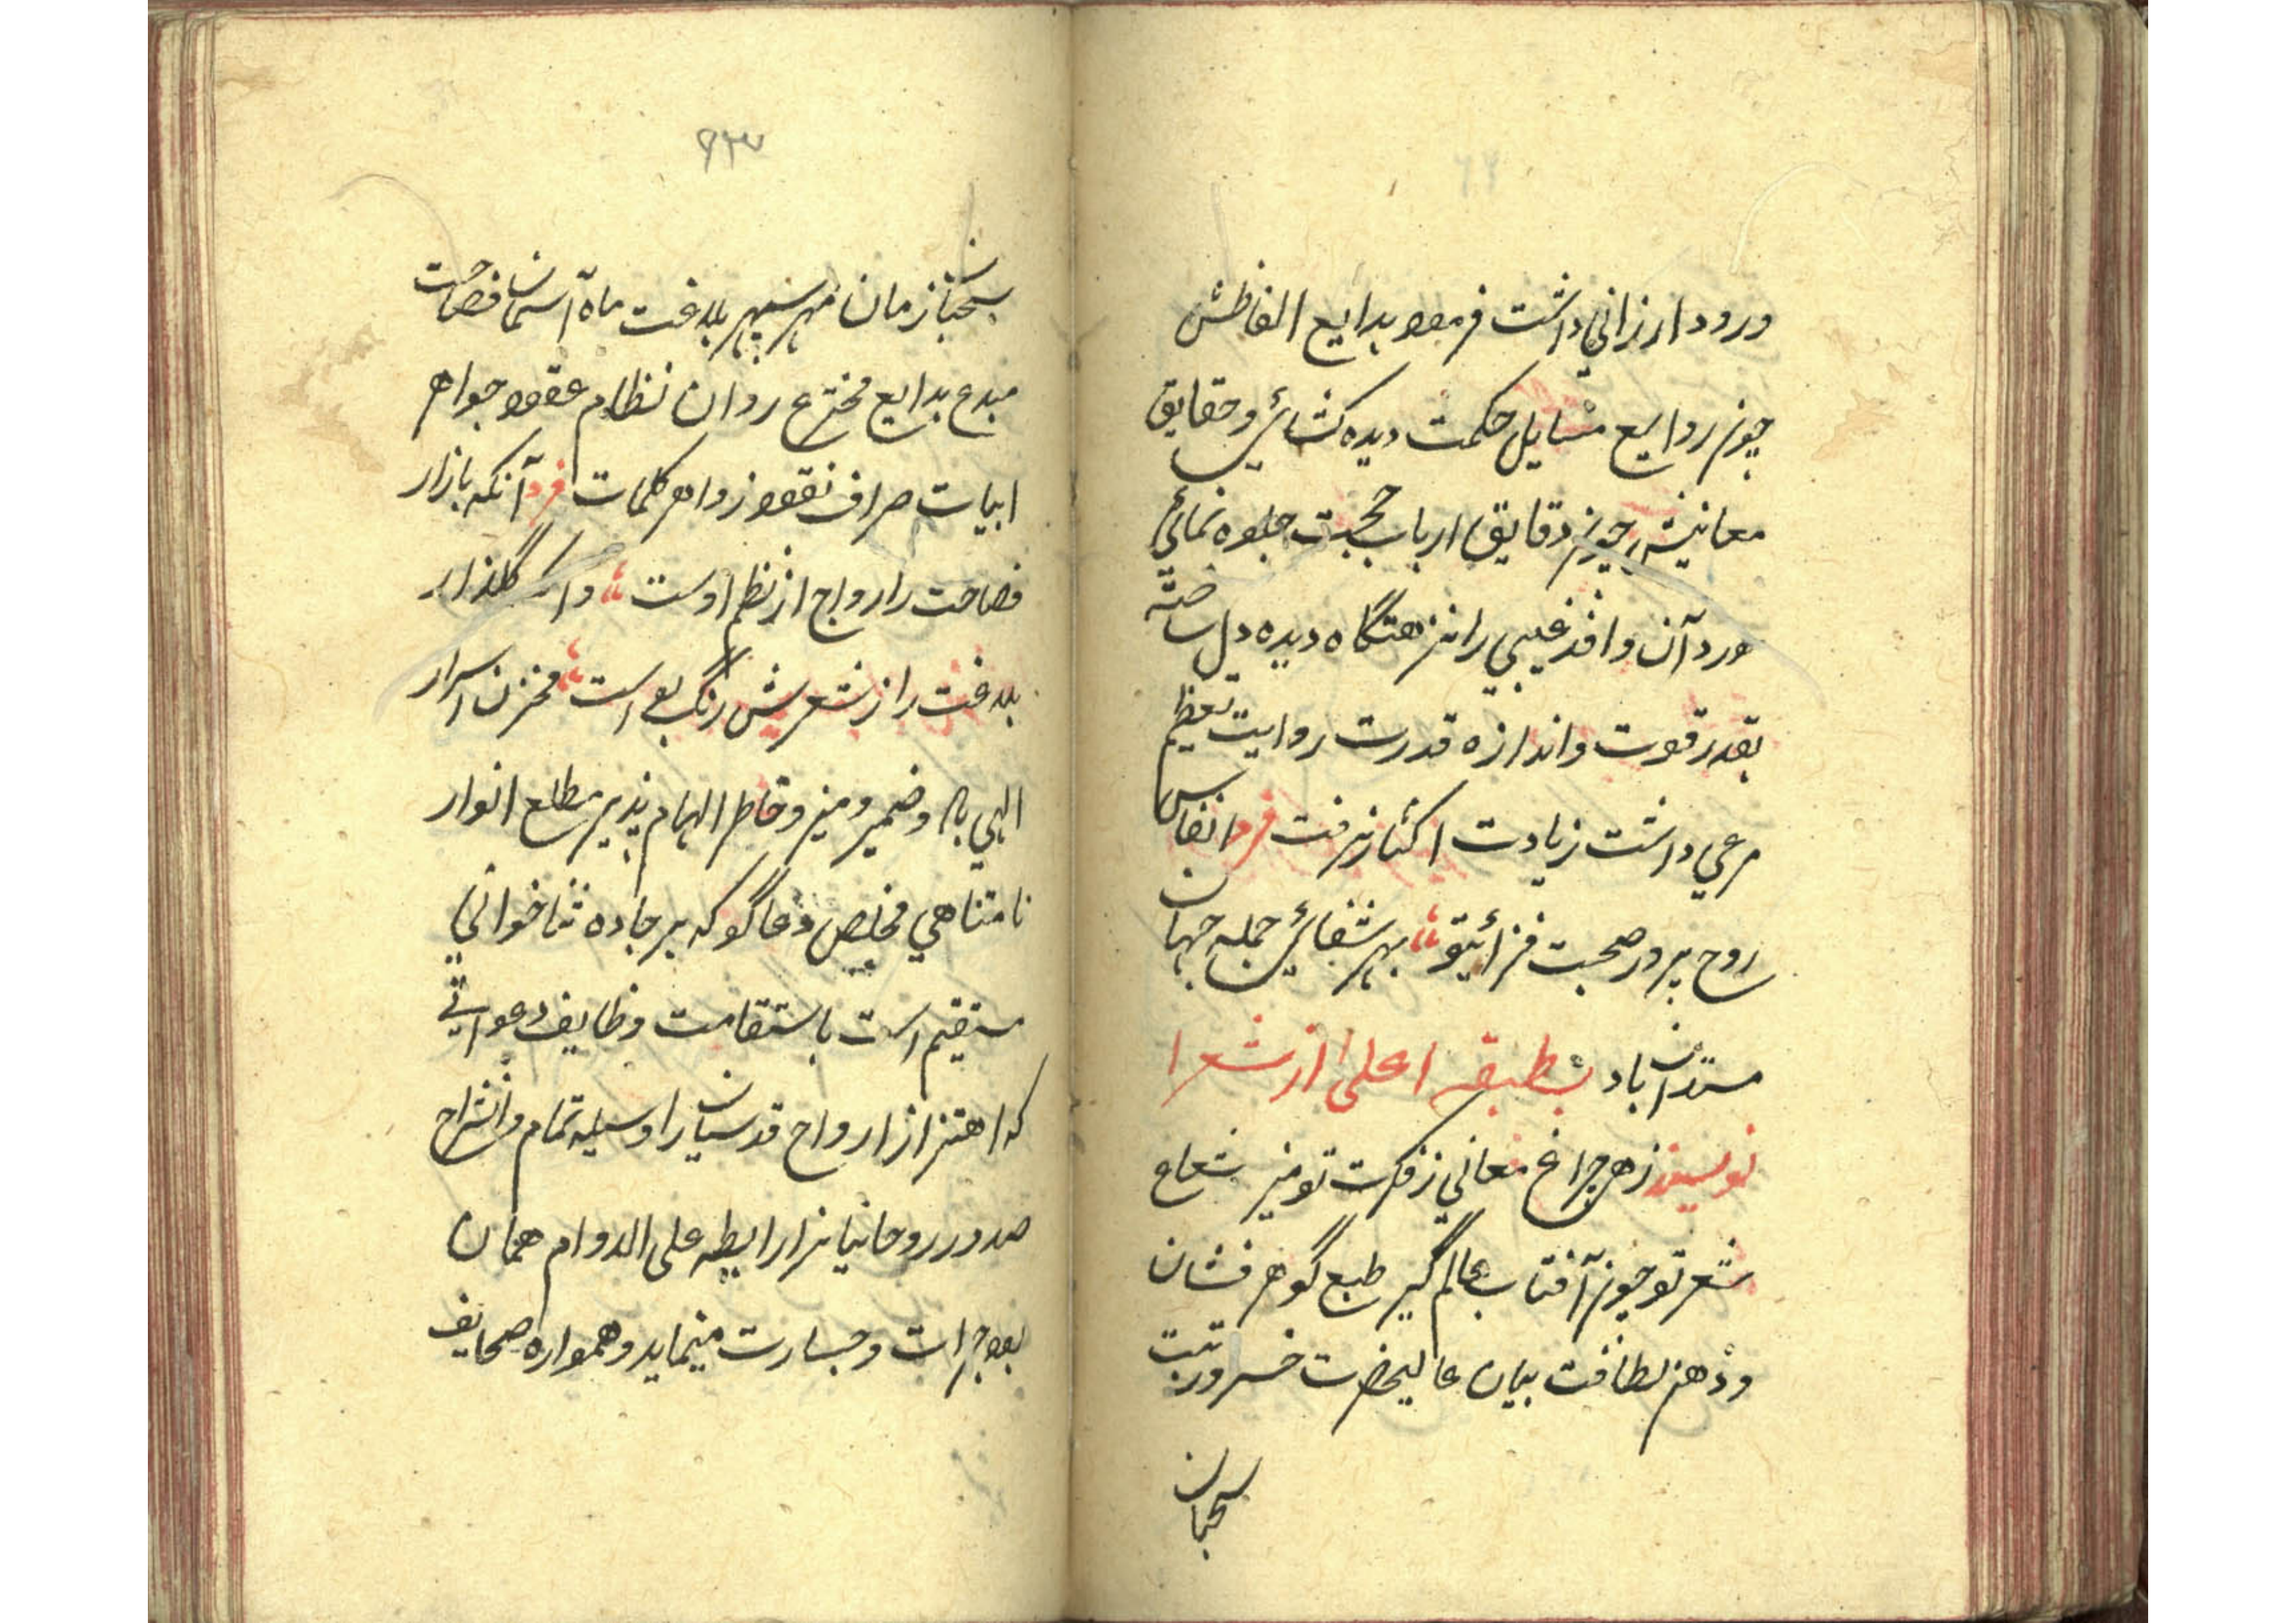 ورود ارزاني داشت فرمود بدايع الفاظش
چون روايع مسايل حكمت ديده كشائي و حقايق
معانيش چون دقايق ارباب حجت جلوه نمائي
ورد آن وافد غيبي را نزهتگاه ديده دل ساخته
بقدر قوت و اندازه قدرت روايت تعظيم
مرعي داشت زيادت اكثار نرفت فرد انفاس
روح پرور صحبت فزائيتو بهر شفائي جمله جهان
مستدان باد بطبقه اعلى از شعرا
نويسند زهي چراغ معاني ز فكرت تو منير شعاع
شعر تو چون آفتاب عالم گير طبع گوهر فشان
وذهن لطافت بيان عاليحضرت خسرو رتبت
سحبان
۶۳
سحبان زمان مهر سپهر بلاغت ماه آسمان فصاحت
مبدع بدايع مخترع روان نظام عقود جواهر
ابيات صراف نقود زواهر كلمات فرد آنكه بازار
فصاحت را رواج از نظم اوست وا گلذار
بلاغت را ز شعرش رنگ بو است مخزن اسرار
الهي باد و ضمير و منير و خاطر الهام پذير مطلع انوار
نامتناهي مخلص دعاگو كه بر جاده ثنا خواني
مستقيم است باستقامت وظايف دعواتي
كه اهتزاز ارواح قدسيان را وسيله تمام و انشراح
صدور روحانيانرا رابطه على الدوام همان
بود جرات و جسارت مينمايد و همواره صحايف